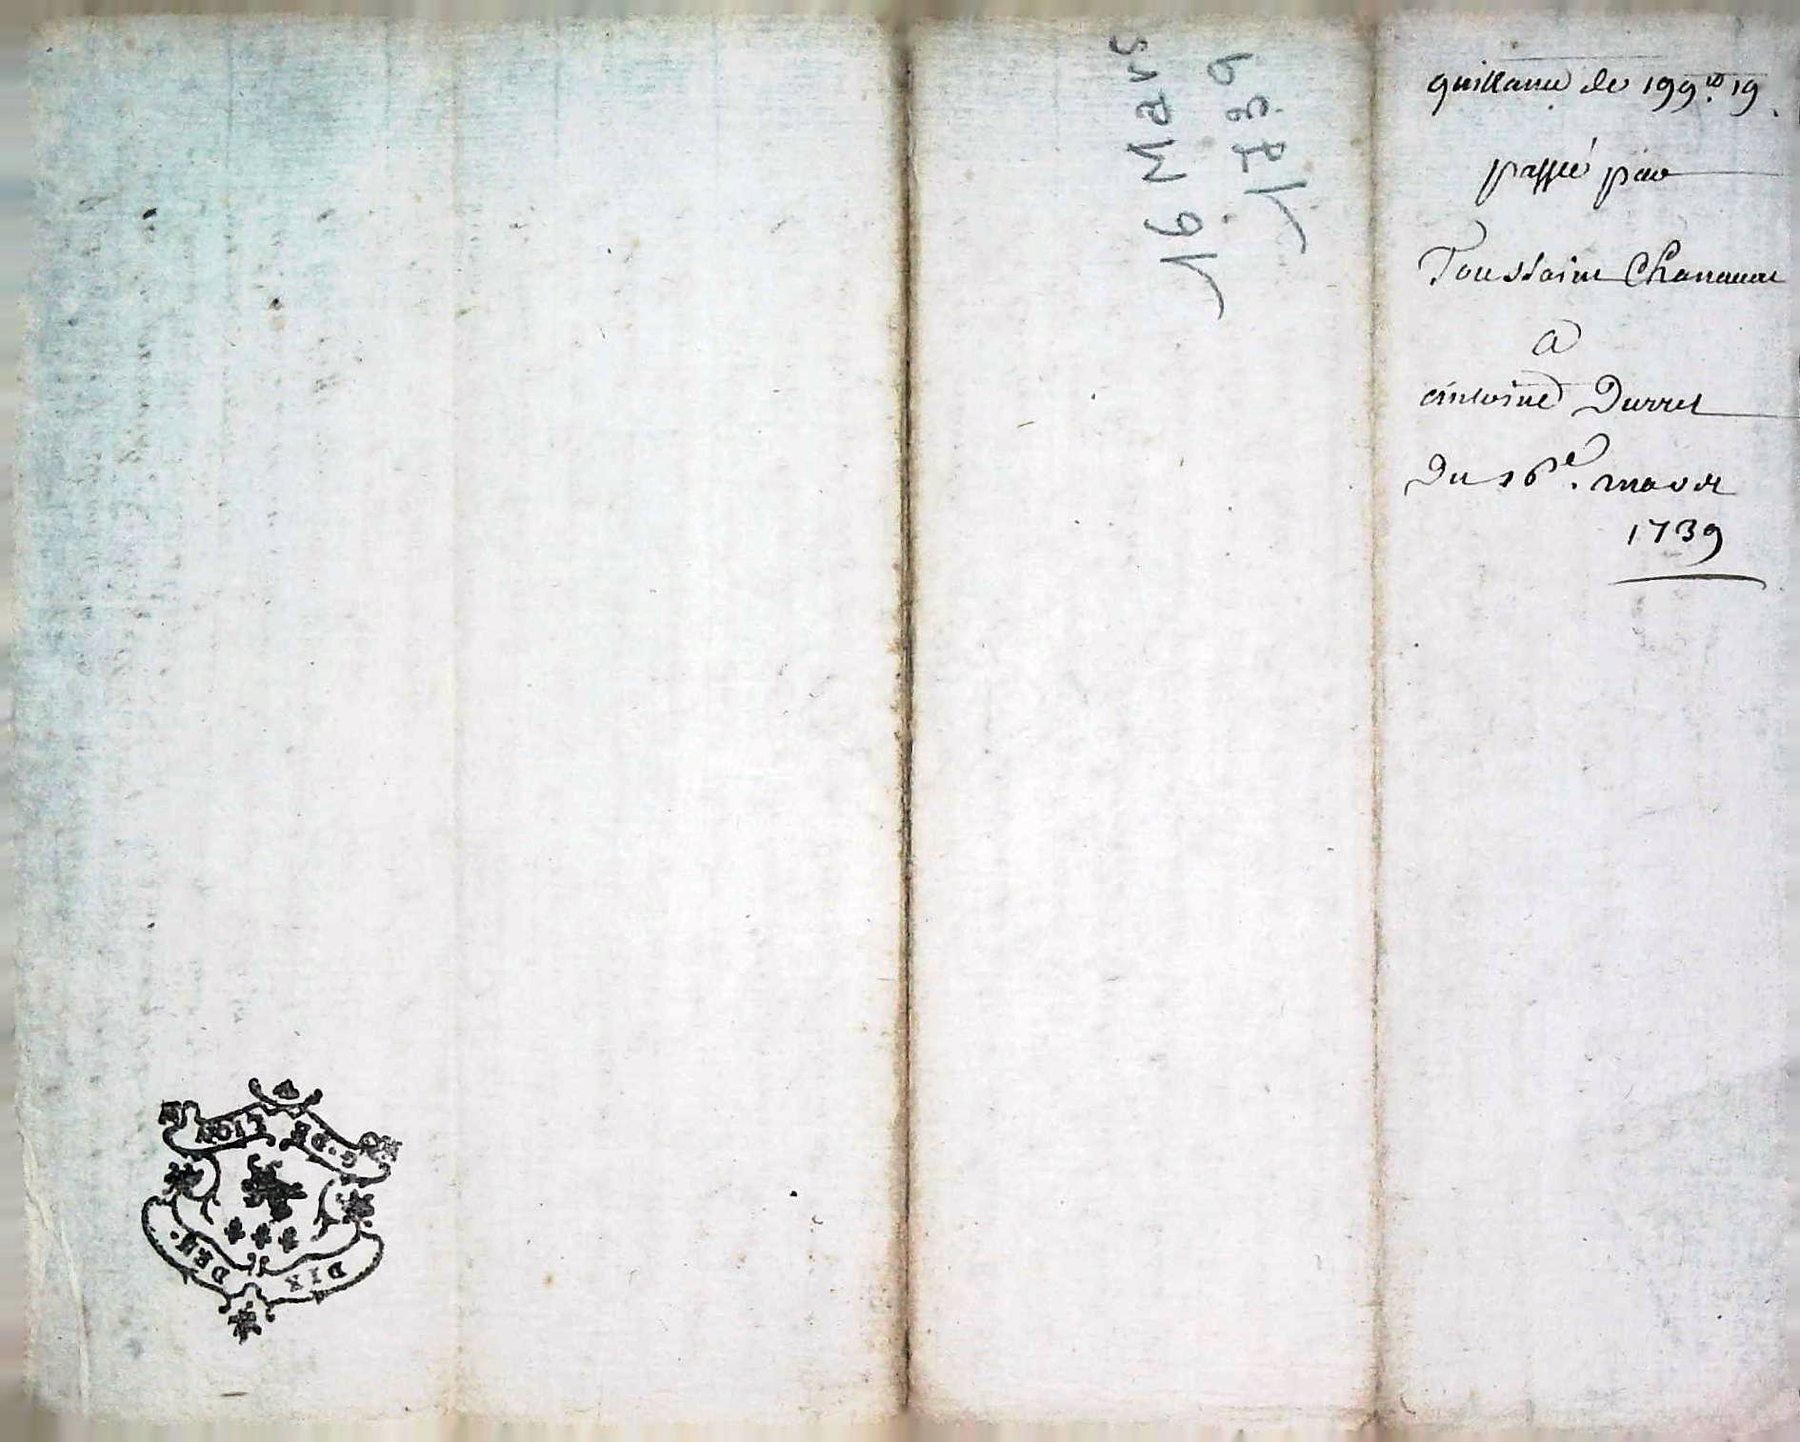 quittance de 199ᵗᵗ 19
passée par
Toussaint Chanavat
a
antoine Durret
Du 16ᵉ. mars
1739
16 Mars
1739
G. DE LION
DIX DEN.